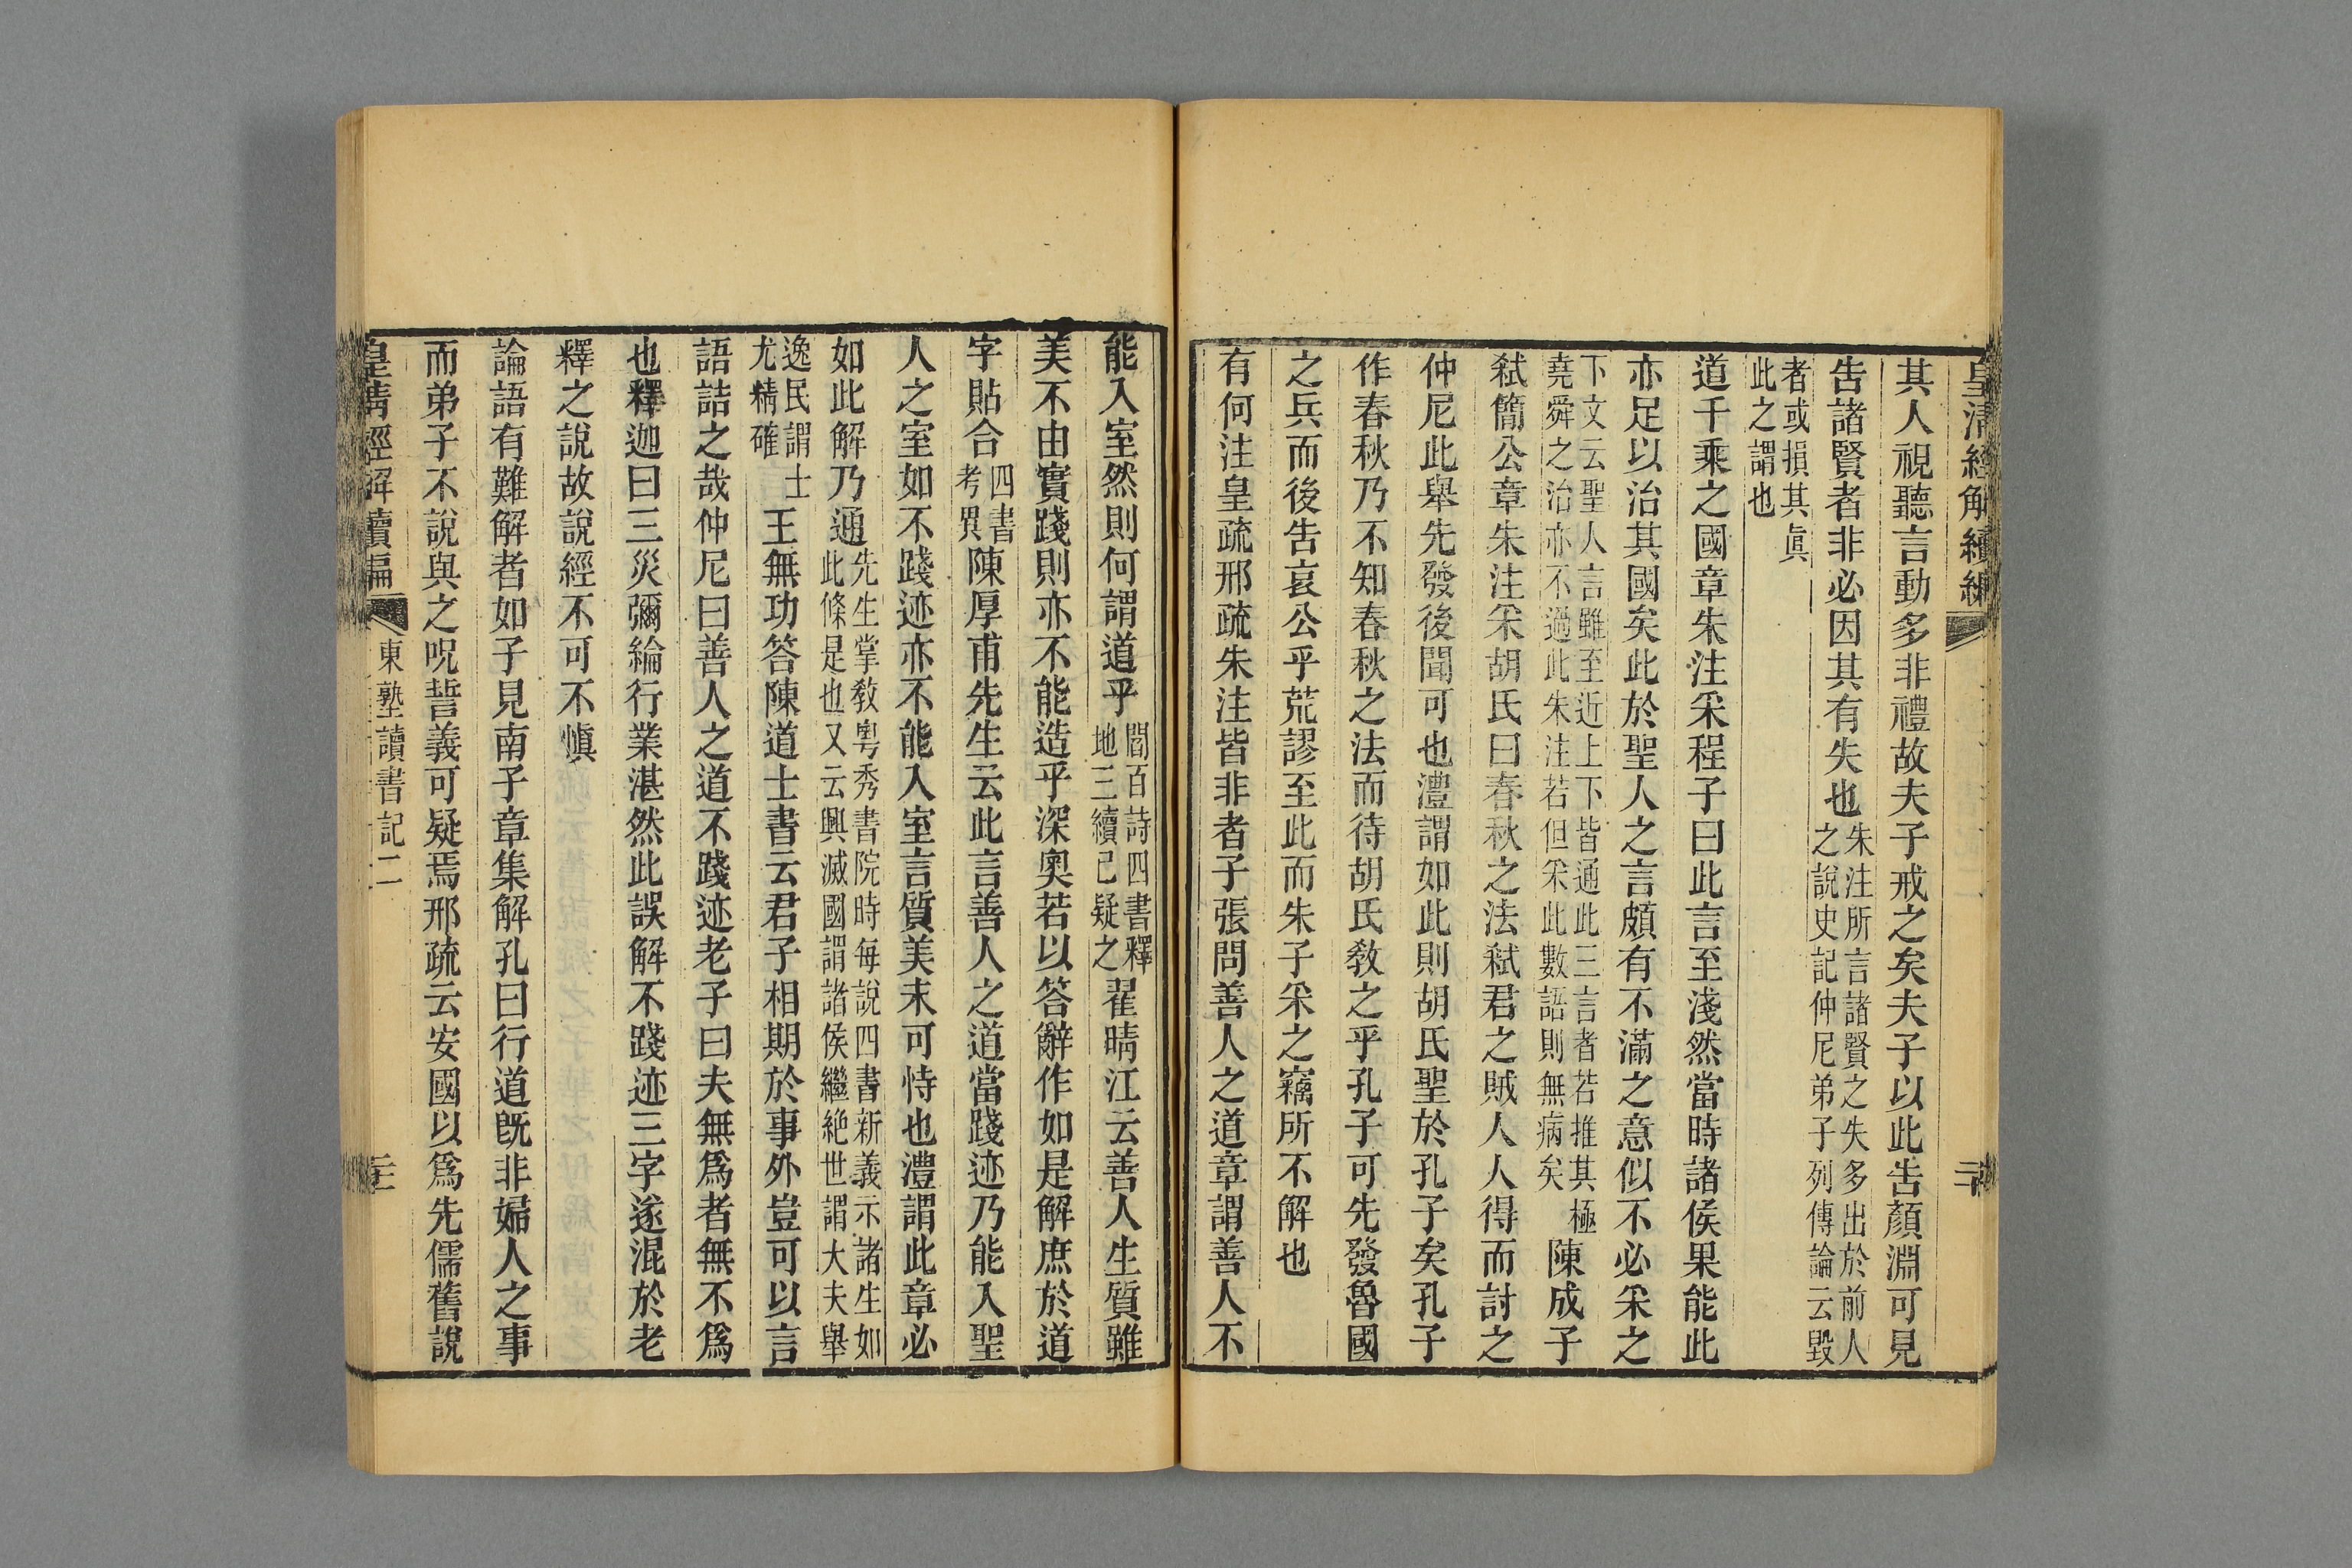 皇清經解續編
其人視聽言動多非禮故夫子戒之矣夫子以此吿顏淵可見
吿諸賢者非必因其有失也朱注所言諸賢之失多出於前人
之說史記仲尼弟子列傳論云毀
者或損其眞
此之謂也
道千乘之國章朱注采程子曰此言至淺然當時諸侯果能此
亦足以治其國矣此於聖人之言頗有不滿之意似不必采之
下文云聖人言雖至近上下皆通此三言者若推其極
堯舜之治亦不過此朱注若但采此數語則無病矣
陳成子
弒簡公章朱注采胡氏曰春秋之法弒君之賊人人得而討之
仲尼此舉先發後聞可也澧謂如此則胡氏聖於孔子矣孔子
作春秋乃不知春秋之法而待胡氏敎之乎孔子可先發魯國
之兵而後吿哀公乎荒謬至此而朱子采之竊所不解也
有何注皇疏邢疏朱注皆非者子張問善人之道章謂善人不
能入室然則何謂道乎閻百詩四書釋
地三續已疑之
翟晴江云善人生質雖
美不由實踐則亦不能造乎深奧若以答辭作如是解庶於道
字貼合四書
考異
陳厚甫先生云此言善人之道當踐迹乃能入聖
人之室如不踐迹亦不能入室言質美未可恃也澧謂此章必
如此解乃通先生掌敎粤秀書院時每說四書新義示諸生如
此條是也又云興滅國謂諸侯繼絶世謂大夫舉
逸民謂士
尤精確
王無功答陳道士書云君子相期於事外豈可以言
語詰之哉仲尼曰善人之道不踐迹老子曰夫無爲者無不爲
也釋迦曰三災彌綸行業湛然此誤解不踐迹三字遂混於老
釋之說故說經不可不愼
論語有難解者如子見南子章集解孔曰行道旣非婦人之事
而弟子不說與之呪誓義可疑焉邢疏云安國以爲先儒舊說
皇淸經解續編
東塾讀書記二